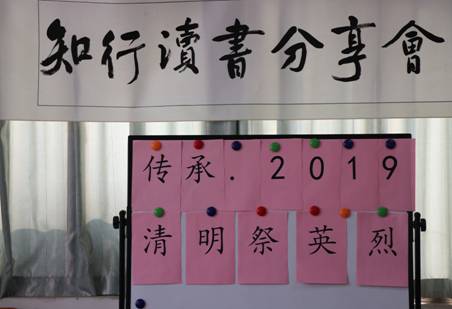 知行讀書分享會
传承.2019
清明祭英烈